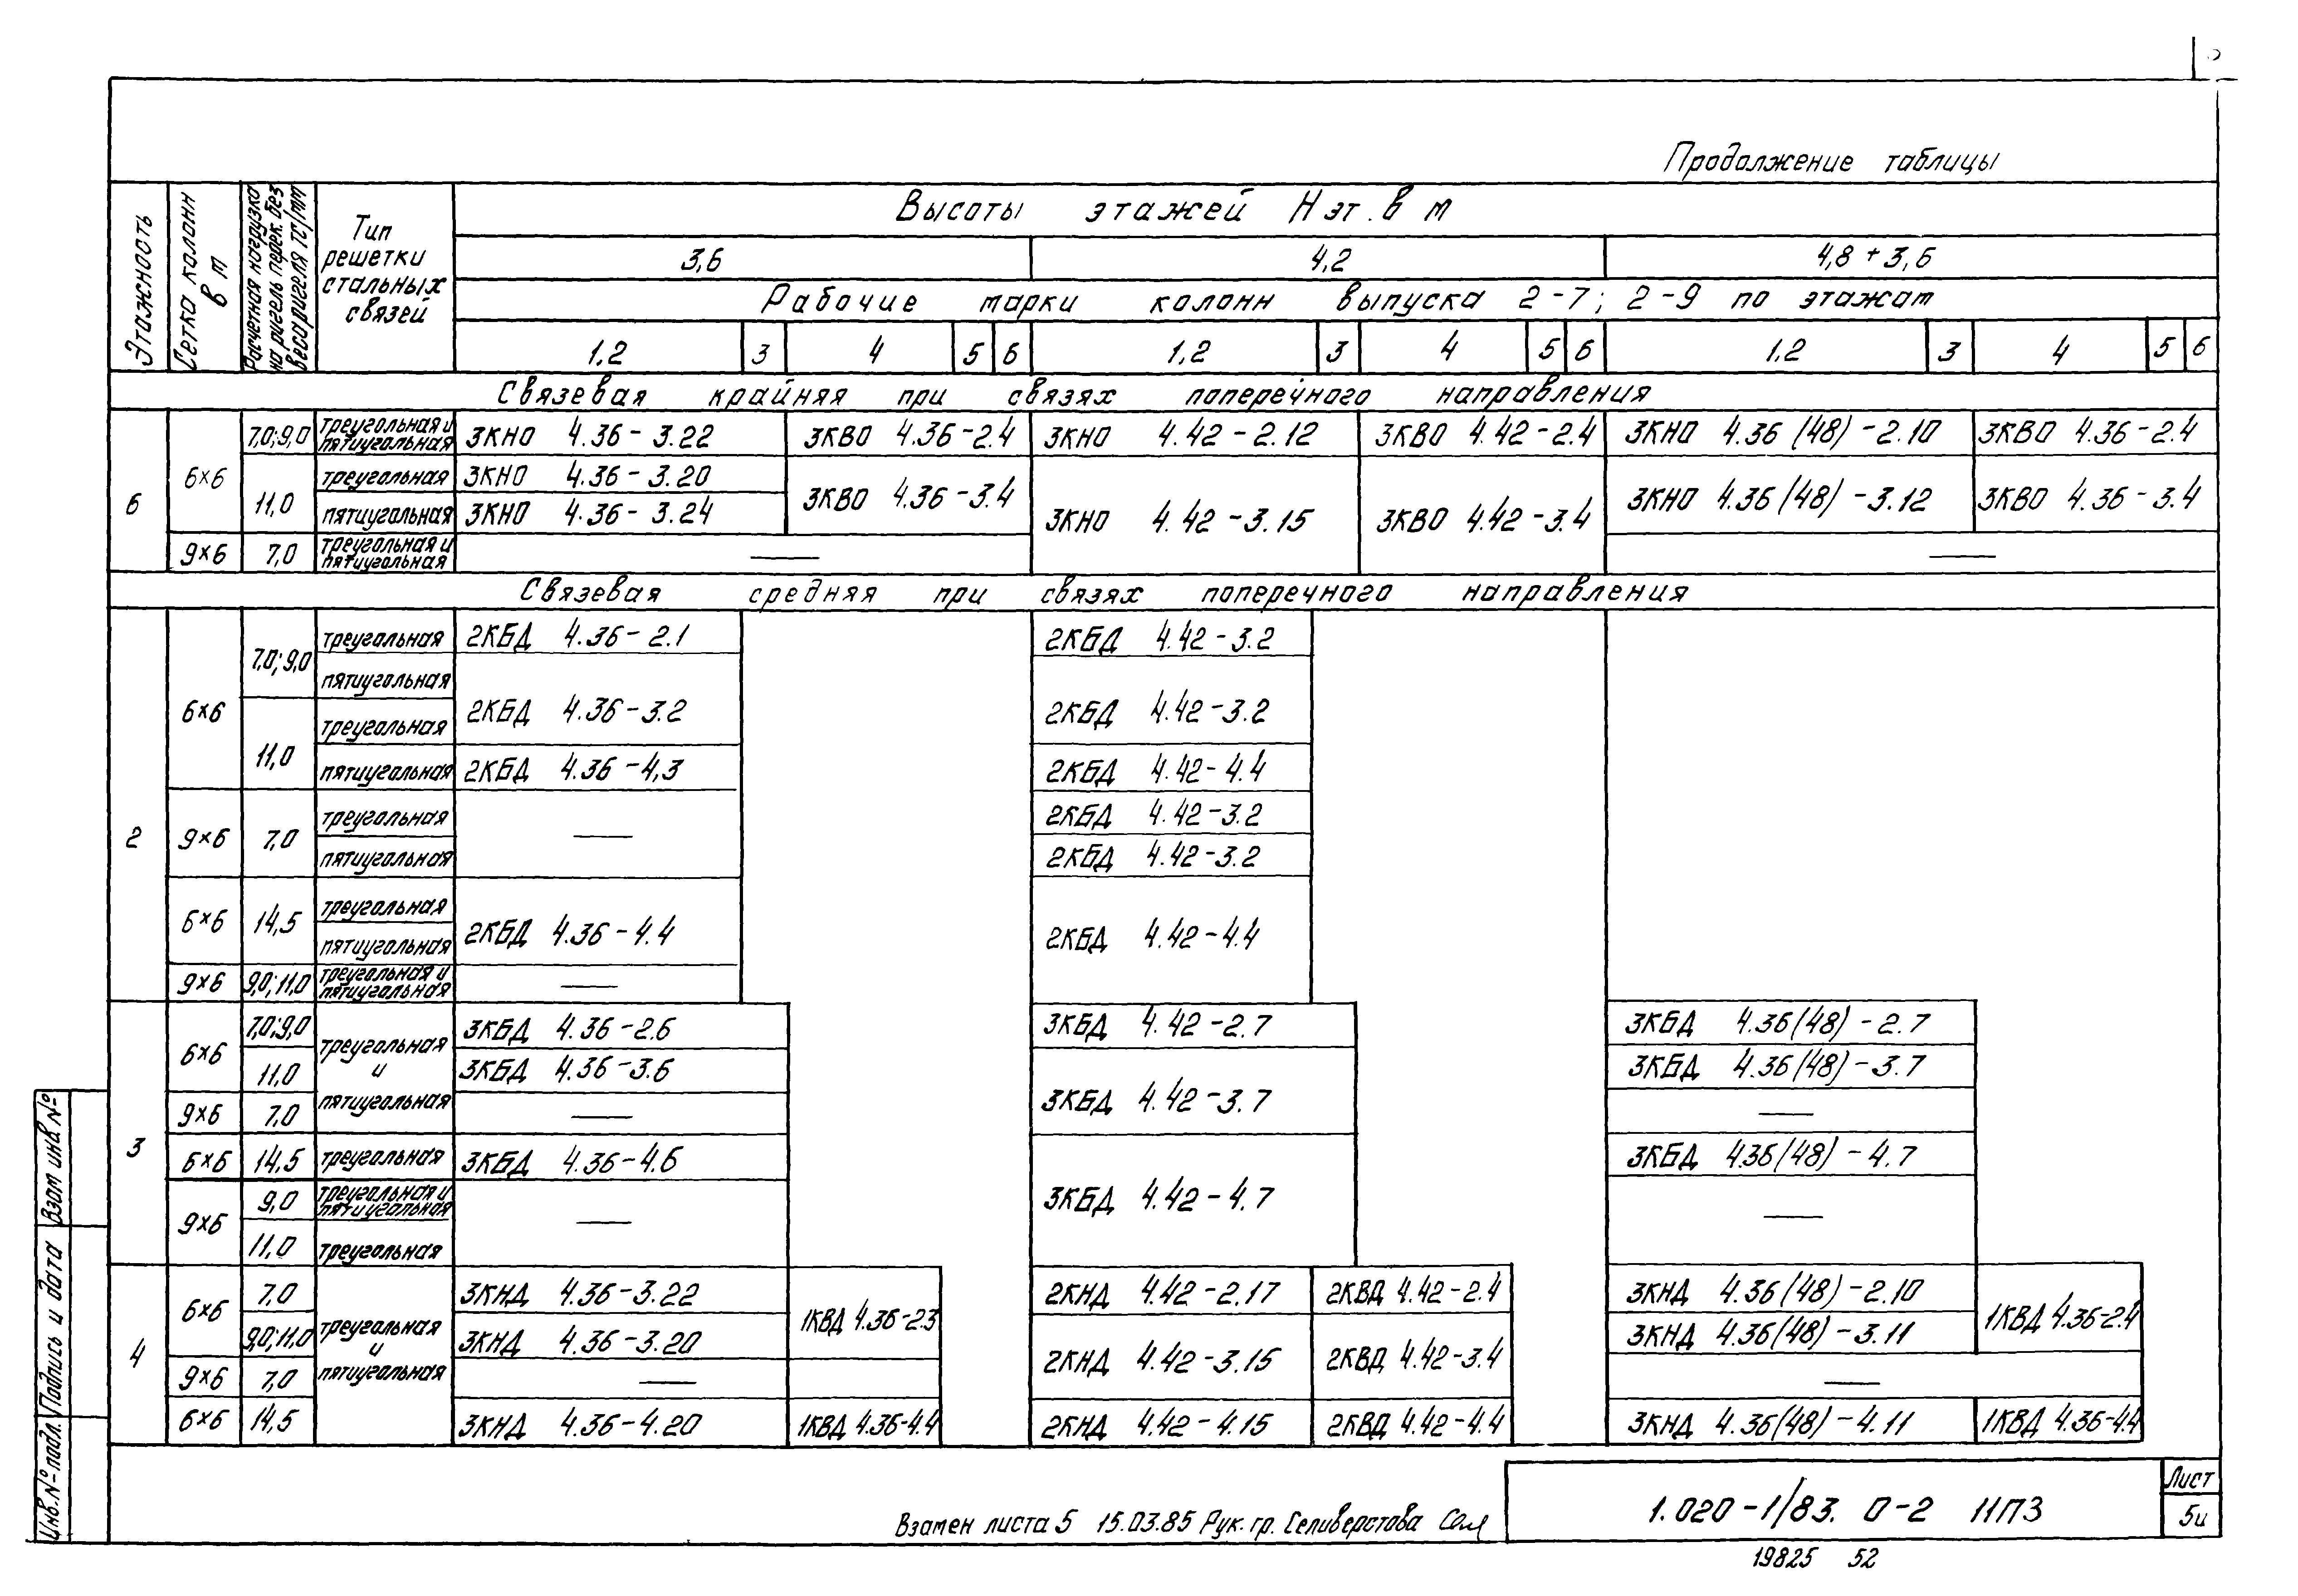 Продолжение таблицы
Этажность
Сетка колонн в м
Расчетная нагрузка на ригель перек. без веса ригеля тс/мм
Тип решетки стальных связей
Высоты этажей Нэт. в м
3,6 4,2 4,8 + 3,6
Рабочие марки колонн выпуска 2-7; 2-9 по этажам
1,2 3 4 5 6 1,2 3 4 5 6 1,2 3 4 5 6
Связевая крайняя при связях поперечного направления
6 6×6 7,0; 9,0 треугольная и пятиугольная 3КНО 4.36-3.22 3КВО 4.36-2.4 3КНО 4.42-2.12 3КВО 4.42-2.4 3КНО 4.36 (48) -2.10 3КВО 4.36-2.4
11,0 треугольная 3КНО 4.36-3.20 3КВО 4.36-3.4 3КНО 4.42-3.15 3КВО 4.42-3.4 3КНО 4.36 (48) -3.12 3КВО 4.36-3.4
пятиугольная 3КНО 4.36-3.24
9×6 7,0 треугольная и пятиугольная — —
Связевая средняя при связях поперечного направления
2 6×6 7,0; 9,0 треугольная 2КБД 4.36-2.1 2КБД 4.42-3.2
пятиугольная 2КБД 4.36-3.2 2КБД 4.42-3.2
11,0 треугольная
пятиугольная 2КБД 4.36-4,3 2КБД 4.42-4.4
9×6 7,0 треугольная — 2КБД 4.42-3.2
пятиугольная 2КБД 4.42-3.2
6×6 14,5 треугольная 2КБД 4.36-4.4 2КБД 4.42-4.4
пятиугольная
9×6 9,0; 11,0 треугольная и пятиугольная —
3 6×6 7,0; 9,0 треугольная и пятиугольная 3КБД 4.36-2.6 3КБД 4.42-2.7 3КБД 4.36(48)-2.7
11,0 3КБД 4.36-3.6 3КБД 4.42-3.7 3КБД 4.36(48)-3.7
9×6 7,0 — —
6×6 14,5 треугольная 3КБД 4.36-4.6 3КБД 4.42-4.7 3КБД 4.36(48)-4.7
9×6 9,0 треугольная и пятиугольная — —
11,0 треугольная
4 6×6 7,0 треугольная и пятиугольная 3КНД 4.36-3.22 1КВД 4.36-2.3 2КНД 4.42-2.17 2КВД 4.42-2.4 3КНД 4.36(48)-2.10 1КВД 4.36-2.4
9,0; 11,0 3КНД 4.36-3.20 2КНД 4.42-3.15 2КВД 4.42-3.4 3КНД 4.36(48)-3.11
9×6 7,0 — —
6×6 14,5 3КНД 4.36-4.20 1КВД 4.36-4.4 2КНД 4.42-4.15 2КВД 4.42-4.4 3КНД 4.36(48)-4.11 1КВД 4.36-4.4
Инв.№ подл. Подпись и дата Взам инв.№
Взамен листа 5 15.03.85 Рук. гр. Селиверстова
1.020-1/83. 0-2 11ПЗ
Лист
5и
19825 52